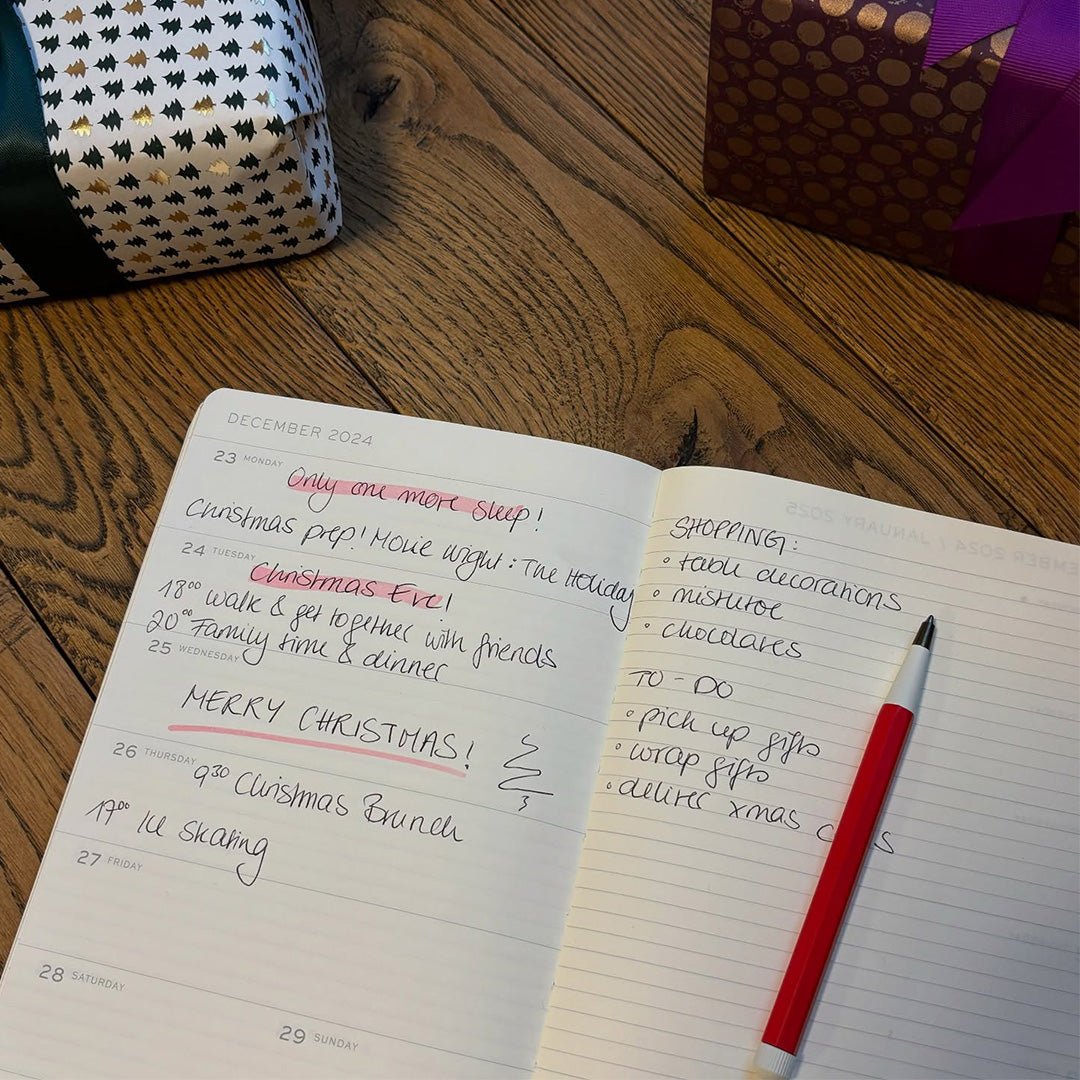 DECEMBER 2024
23 MONDAY
Only one more sleep!
Christmas prep! Movie night: The Holiday
24 TUESDAY
Christmas Eve!
18⁰⁰ walk & get together with friends
20⁰⁰ Family time & dinner
25 WEDNESDAY
MERRY CHRISTMAS!
26 THURSDAY
9³⁰ Christmas Brunch
17⁰⁰ Ice skating
27 FRIDAY
28 SATURDAY
29 SUNDAY
SHOPPING:
• table decorations
• mistletoe
• chocolates
TO-DO
• pick up gifts
• wrap gifts
• deliver xmas